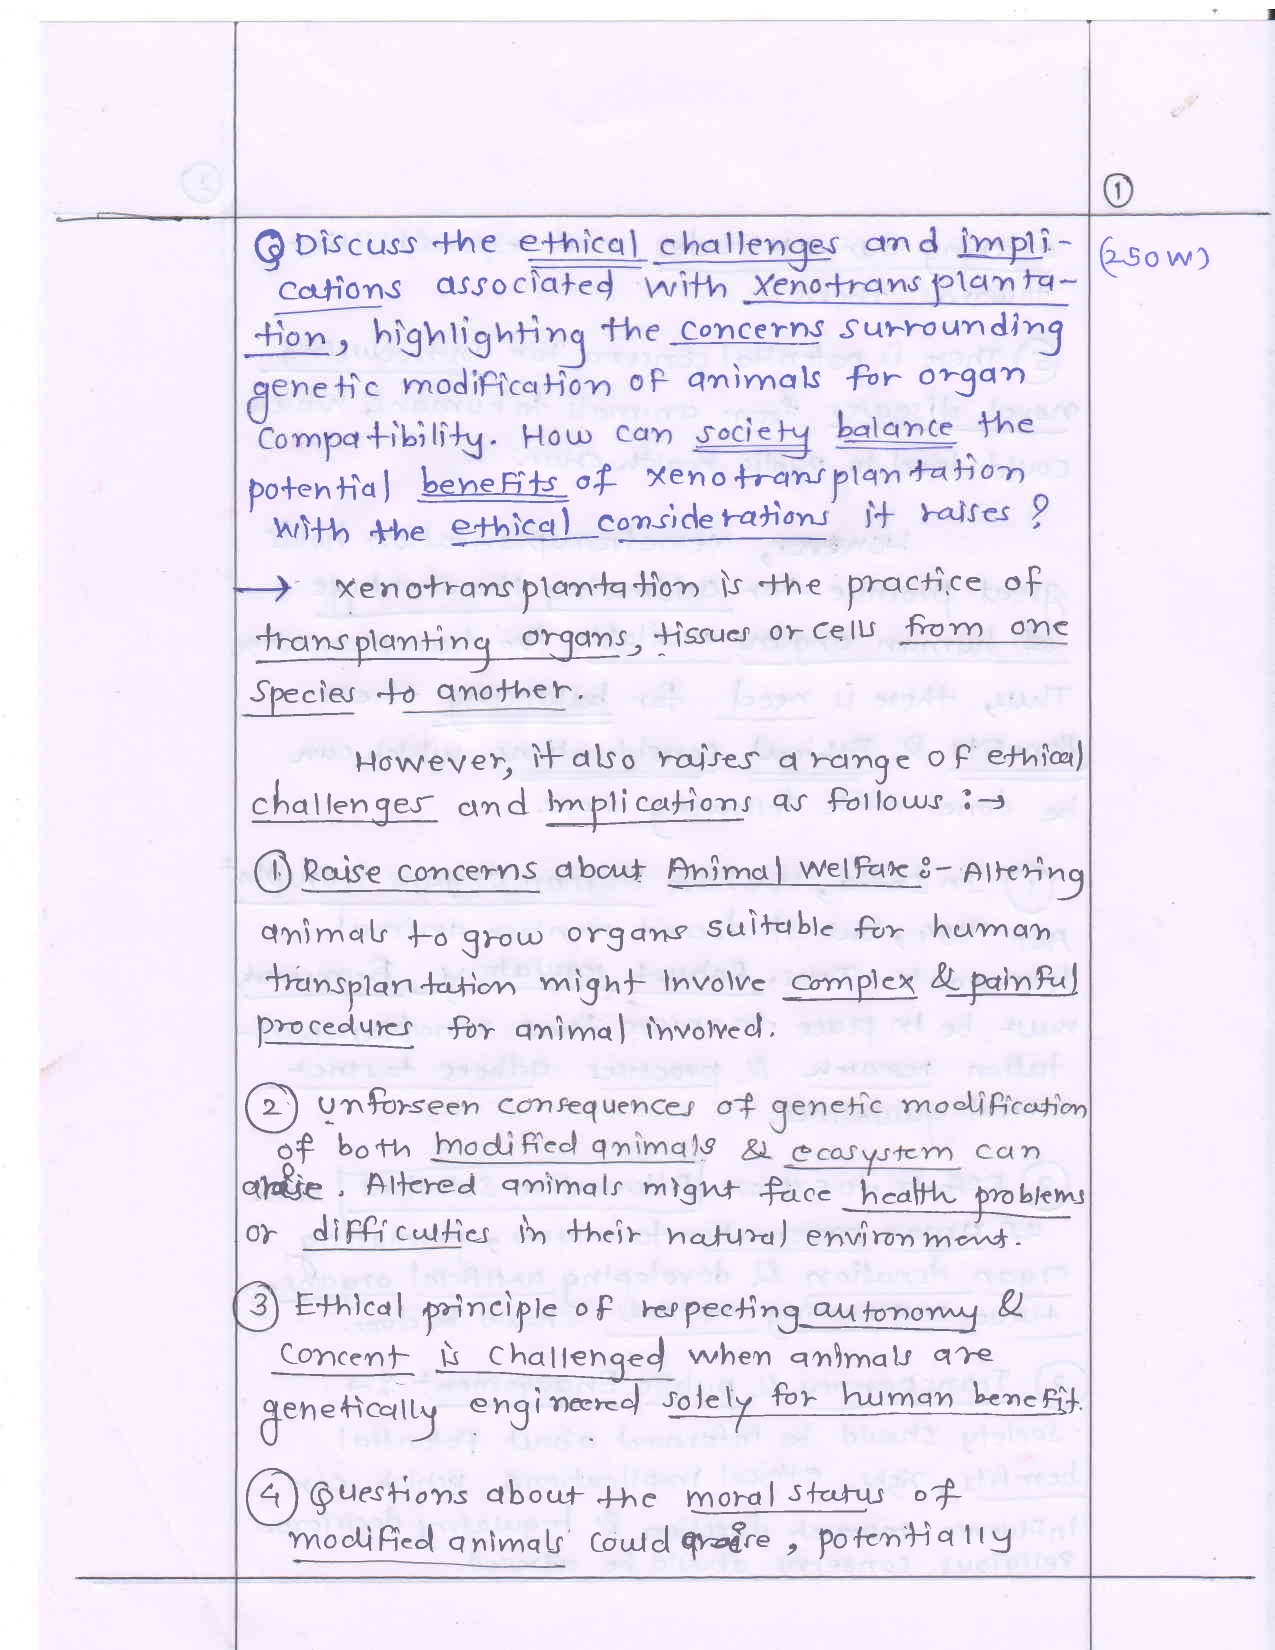 ①
Q Discuss the ethical challenges and impli- (250W)
cations associated with xenotransplanta-
tion, highlighting the concerns surrounding
genetic modification of animals for organ
compatibility. How can society balance the
potential benefits of xenotransplantation
with the ethical considerations it raises?
→ Xenotransplantation is the practice of
transplanting organs, tissues or cells from one
species to another.
However, it also raises a range of ethical
challenges and implications as follows :→
① Raise concerns about Animal welfare :- Altering
animals to grow organs suitable for human
transplantation might involve complex & painful
procedures for animal involved.
② Unforseen consequences of genetic modification
of both modified animals & ecosystem can
arise. Altered animals might face health problems
or difficulties in their natural environment.
③ Ethical principle of respecting autonomy &
concent is challenged when animals are
genetically engineered solely for human benefit.
④ Questions about the moral status of
modified animals could arise, potentially